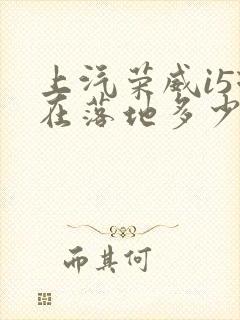 上汽荣威i5
在落地多少
而其何